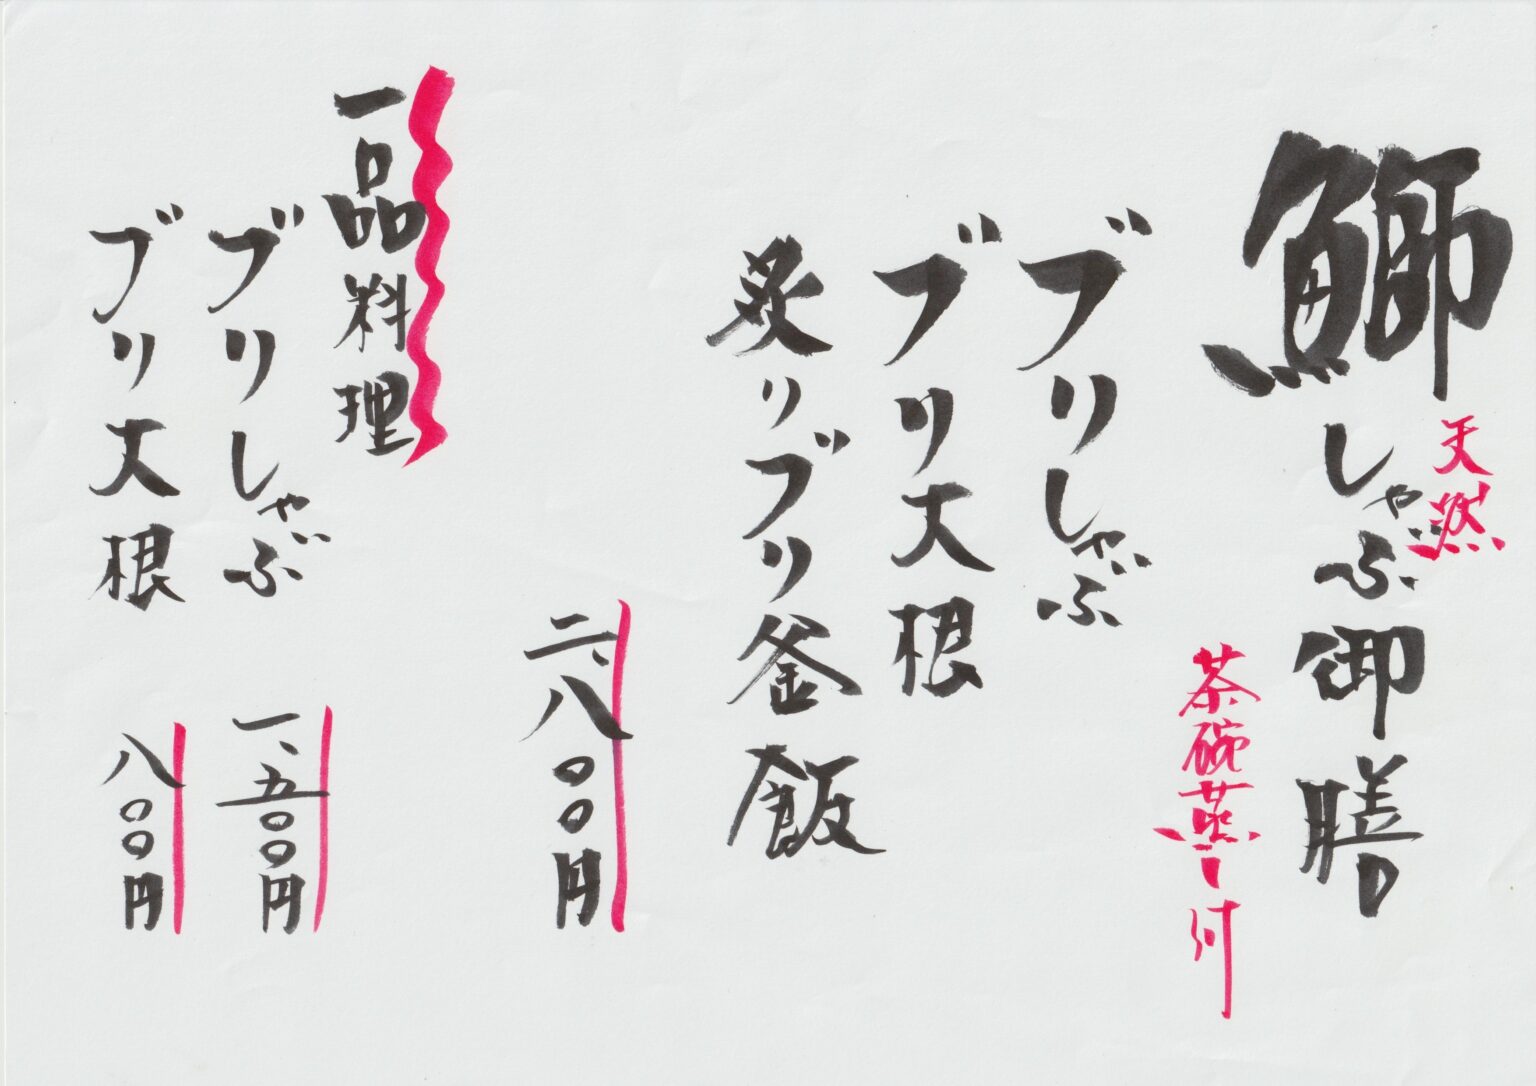 天然
鰤しゃぶ御膳
茶碗蒸し付
ブリしゃぶ
ブリ大根
炙りブリ釜飯
二、八〇〇円
一品料理
ブリしゃぶ 一、五〇〇円
ブリ大根 八〇〇円